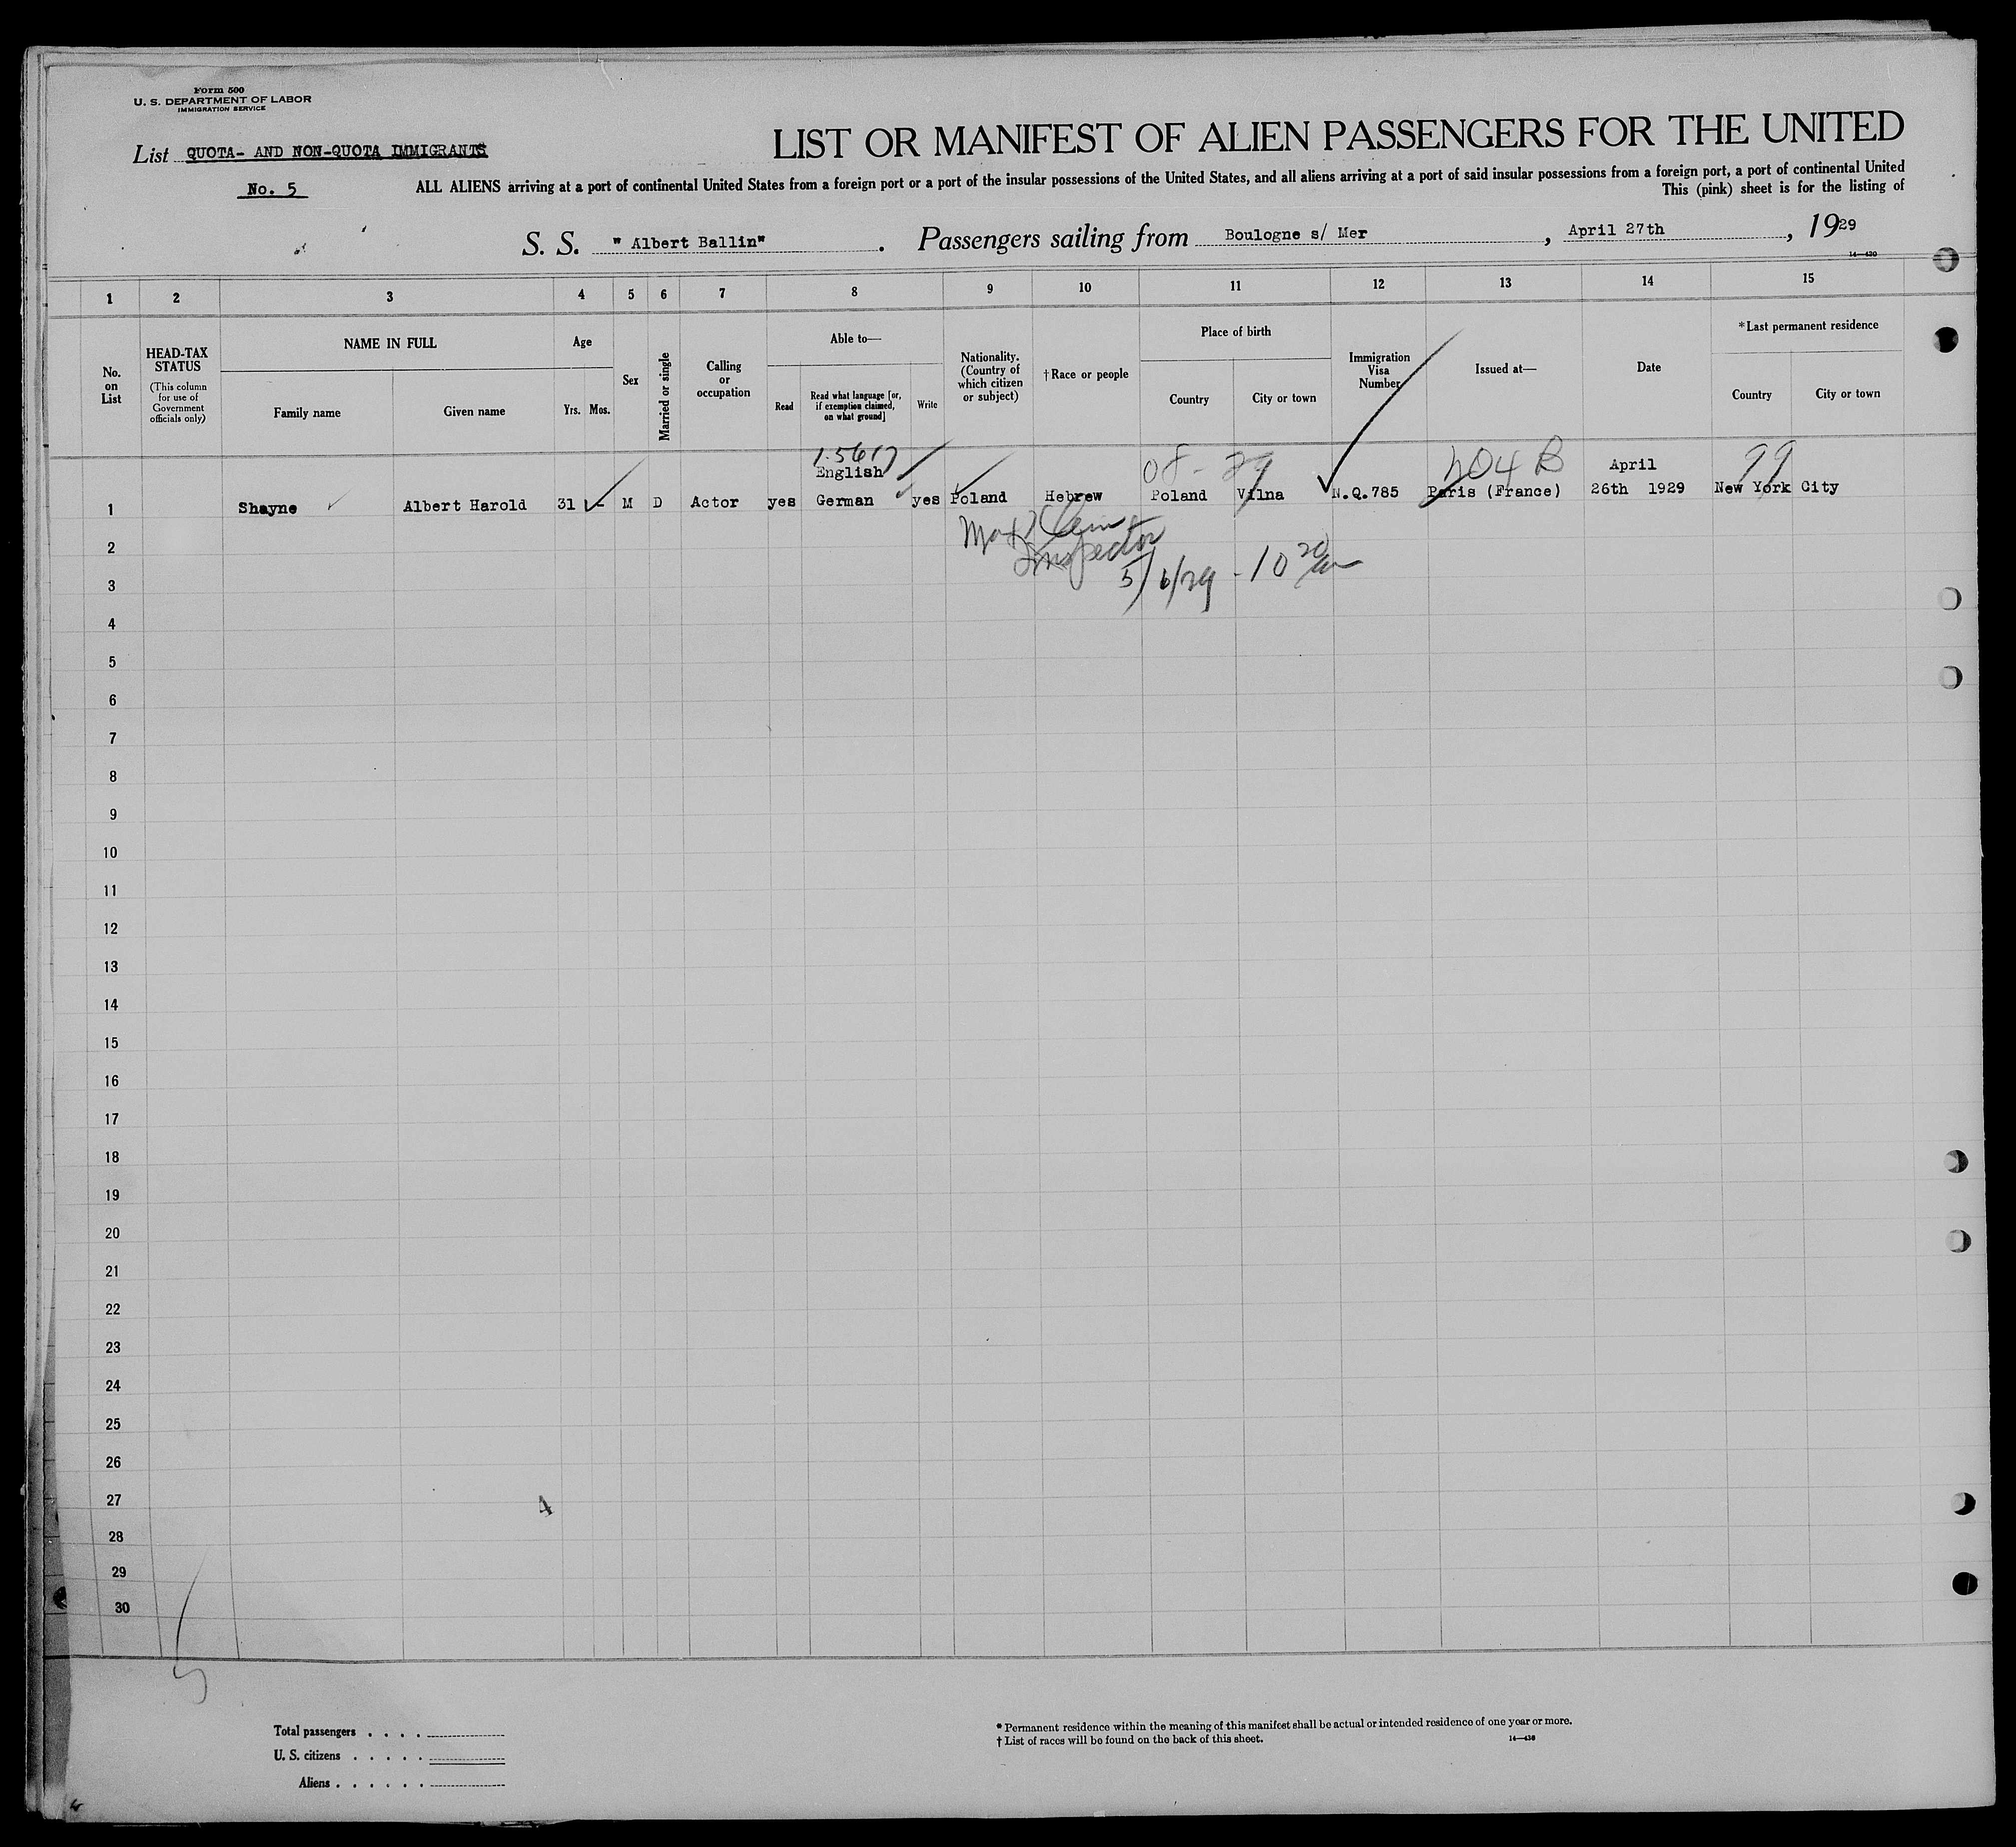 Form 500
U. S. DEPARTMENT OF LABOR
IMMIGRATION SERVICE
List QUOTA- AND NON-QUOTA IMMIGRANTS
No. 5
LIST OR MANIFEST OF ALIEN PASSENGERS FOR THE UNITED
ALL ALIENS arriving at a port of continental United States from a foreign port or a port of the insular possessions of the United States, and all aliens arriving at a port of said insular possessions from a foreign port, a port of continental United
This (pink) sheet is for the listing of
S. S. " Albert Ballin" . Passengers sailing from Boulogne s/ Mer , April 27th , 1929
14—430
1 2 3 4 5 6 7 8 9 10 11 12 13 14 15
No. on List
HEAD-TAX STATUS
(This column for use of Government officials only)
NAME IN FULL
Family name
Given name
Age
Yrs. Mos.
Sex
Married or single
Calling or occupation
Able to—
Read
Read what language [or, if exemption claimed, on what ground]
Write
Nationality. (Country of which citizen or subject)
† Race or people
Place of birth
Country
City or town
Immigration Visa Number
Issued at—
Date
* Last permanent residence
Country
City or town
08 - 29 204 B 99
English April
1 Shayne Albert Harold 31 - M D Actor yes German yes Poland Hebrew Poland Vilna N.Q.785 Paris (France) 26th 1929 New York City
Inspector
5/6/29 - 10 20 am
2
3
4
5
6
7
8
9
10
11
12
13
14
15
16
17
18
19
20
21
22
23
24
25
26
27
4
28
29
30
Total passengers . . . .
U. S. citizens . . . . .
Aliens . . . . . .
* Permanent residence within the meaning of this manifest shall be actual or intended residence of one year or more.
† List of races will be found on the back of this sheet.
14—430